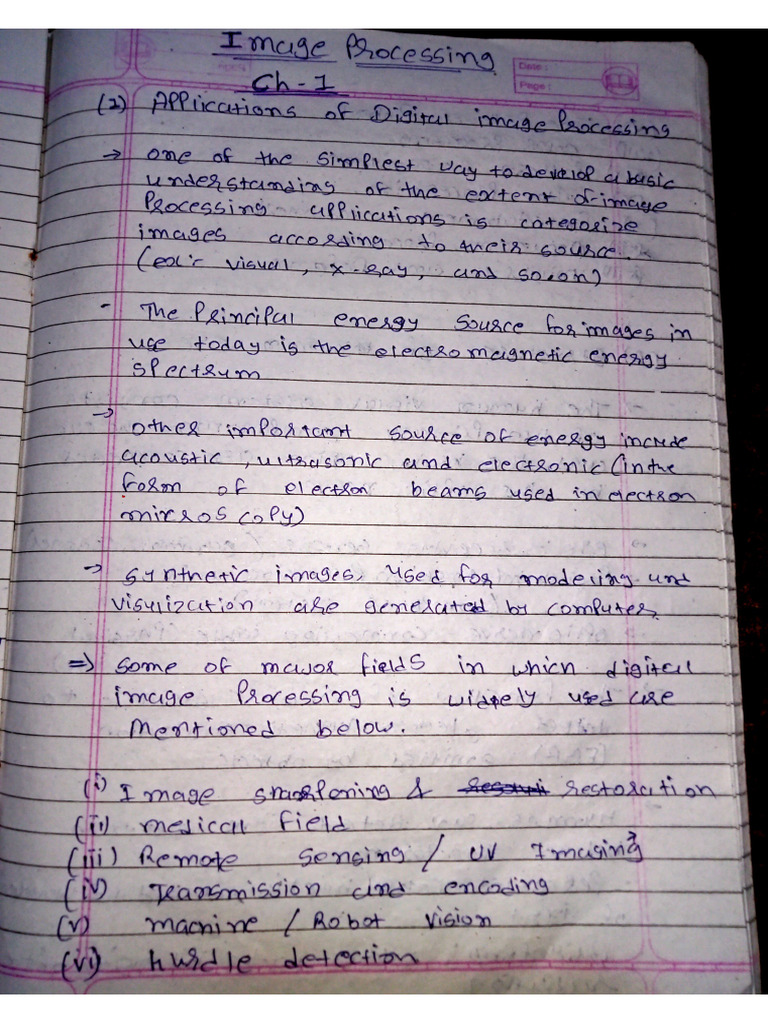 Image Processing
Date :
Page :
Ch-1
(2) Applications of Digital image Processing
→ one of the simplest way to develop a basic
understanding of the extent of image
Processing applications is categorize
images according to their source.
visual, x-ray, and so.on)
- The Principal energy source for images in
use today is the electromagnetic energy
spectrum
→ other important source of energy include
acoustic, ultrasonic and electronic (in the
form of electron beams used in electron
microscopy)
→ synthetic images, used for modeling and
visulization are generated by computer.
⇒ some of major fields in which digital
image Processing is widely used are
mentioned below.
(i) Image & restoration
(ii) medical field
(iii) Remote sensing / UV Imaging
(iv) Transmission and encoding
(v) machine / Robot vision
(vi) hurdle detection